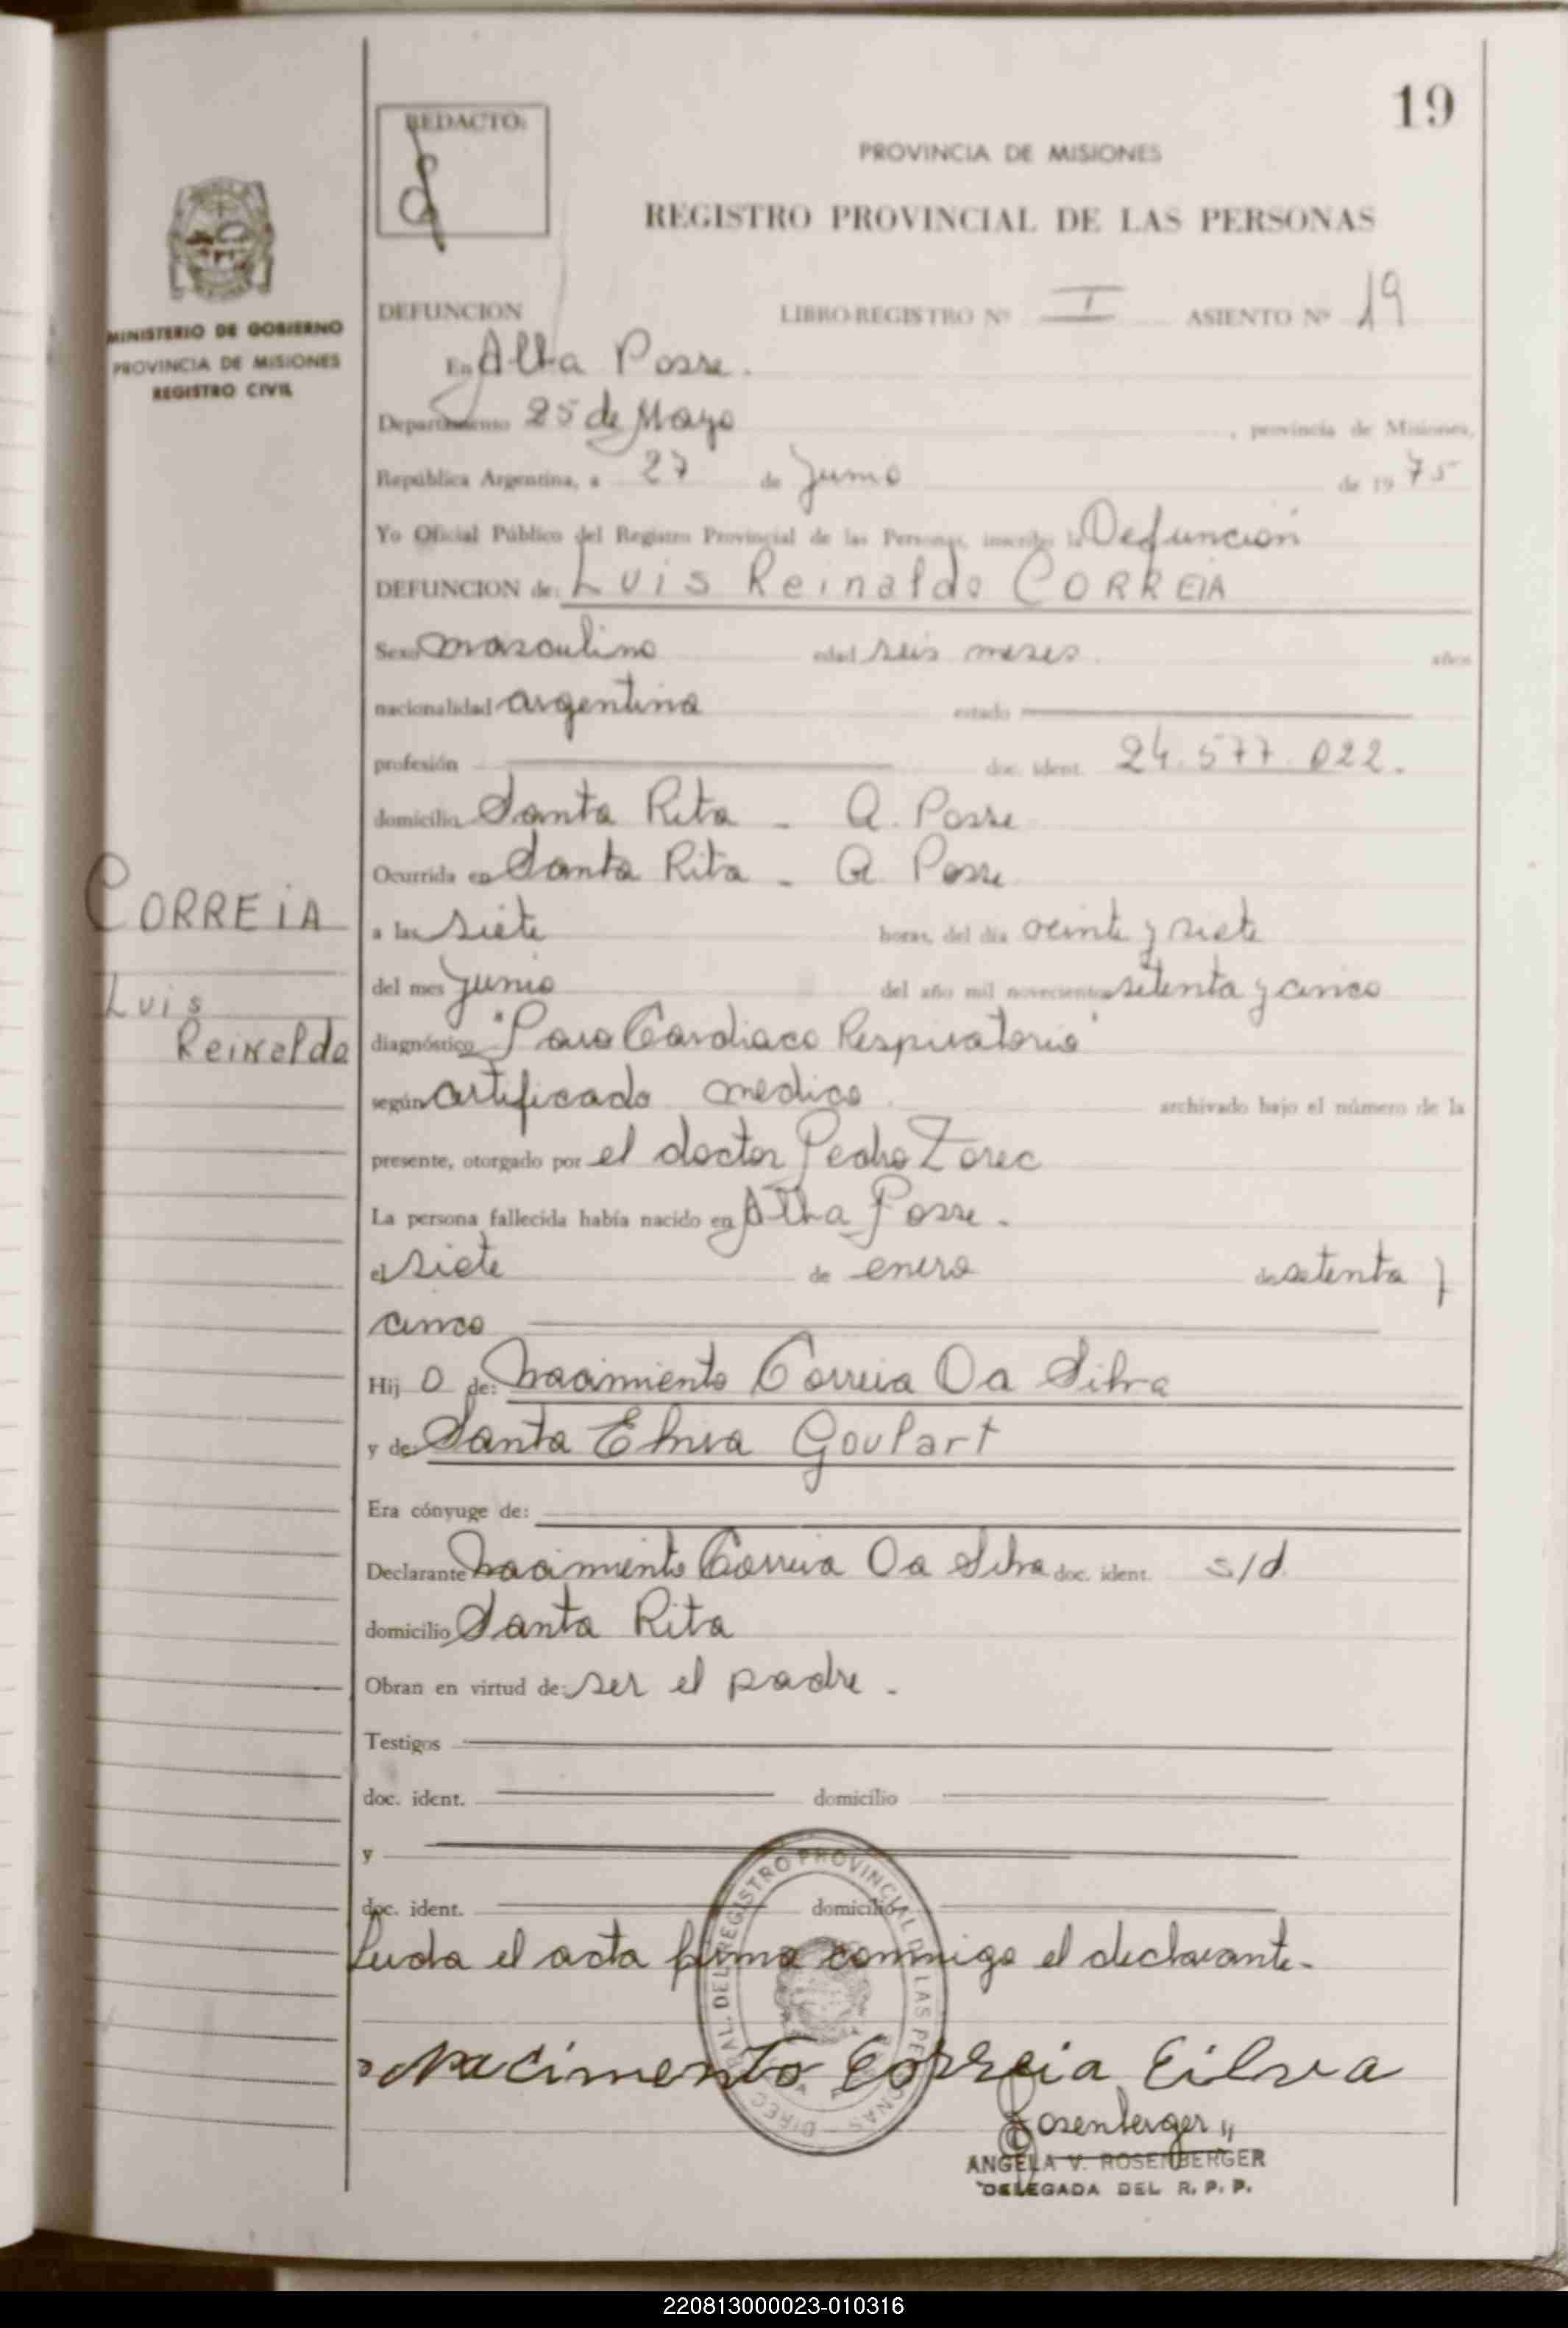 19
REDACTO:
PROVINCIA DE MISIONES
REGISTRO PROVINCIAL DE LAS PERSONAS
MINISTERIO DE GOBIERNO
PROVINCIA DE MISIONES
REGISTRO CIVIL
DEFUNCION LIBRO-REGISTRO Nº I ASIENTO Nº 19
En Alba Posse.
Departamento 25 de Mayo , provincia de Misiones,
República Argentina, a 27 de Junio de 19 75
Yo Oficial Público del Registro Provincial de las Personas, inscribo la Defunción
DEFUNCION de: Luis Reinaldo CORREIA
Sexo masculino edad seis meses. años
nacionalidad argentina estado
profesión doc. ident. 24.577.022.
domicilio Santa Rita - A. Posse
Ocurrida en Santa Rita - A Posse
CORREIA
a las siete horas, del día veinte y siete
Luis
del mes junio del año mil novecientos setenta y cinco
Reinaldo
diagnóstico "Paro Cardiaco Respiratorio"
según certificado medico archivado bajo el número de la
presente, otorgado por el doctor Pedro Zorec
La persona fallecida había nacido en Alba Posse.
el siete de enero de setenta y
cinco
Hij o de: Nacimiento Correia Da Silva
y de: Santa Elvira Goulart
Era cónyuge de:
Declarante Nacimiento Correia Da Silva doc. ident. s/d
domicilio Santa Rita
Obran en virtud de: ser el padre.
Testigos
doc. ident. domicilio
y
doc. ident. domicilio
Leida el acta firma conmigo el declarante.
Nacimento Correia Cilva
Rosenberger
ANGELA V. ROSENBERGER
DELEGADA DEL R. P. P.
DIREC. GRAL. DEL REGISTRO PROVINCIAL DE LAS PERSONAS
220813000023-010316